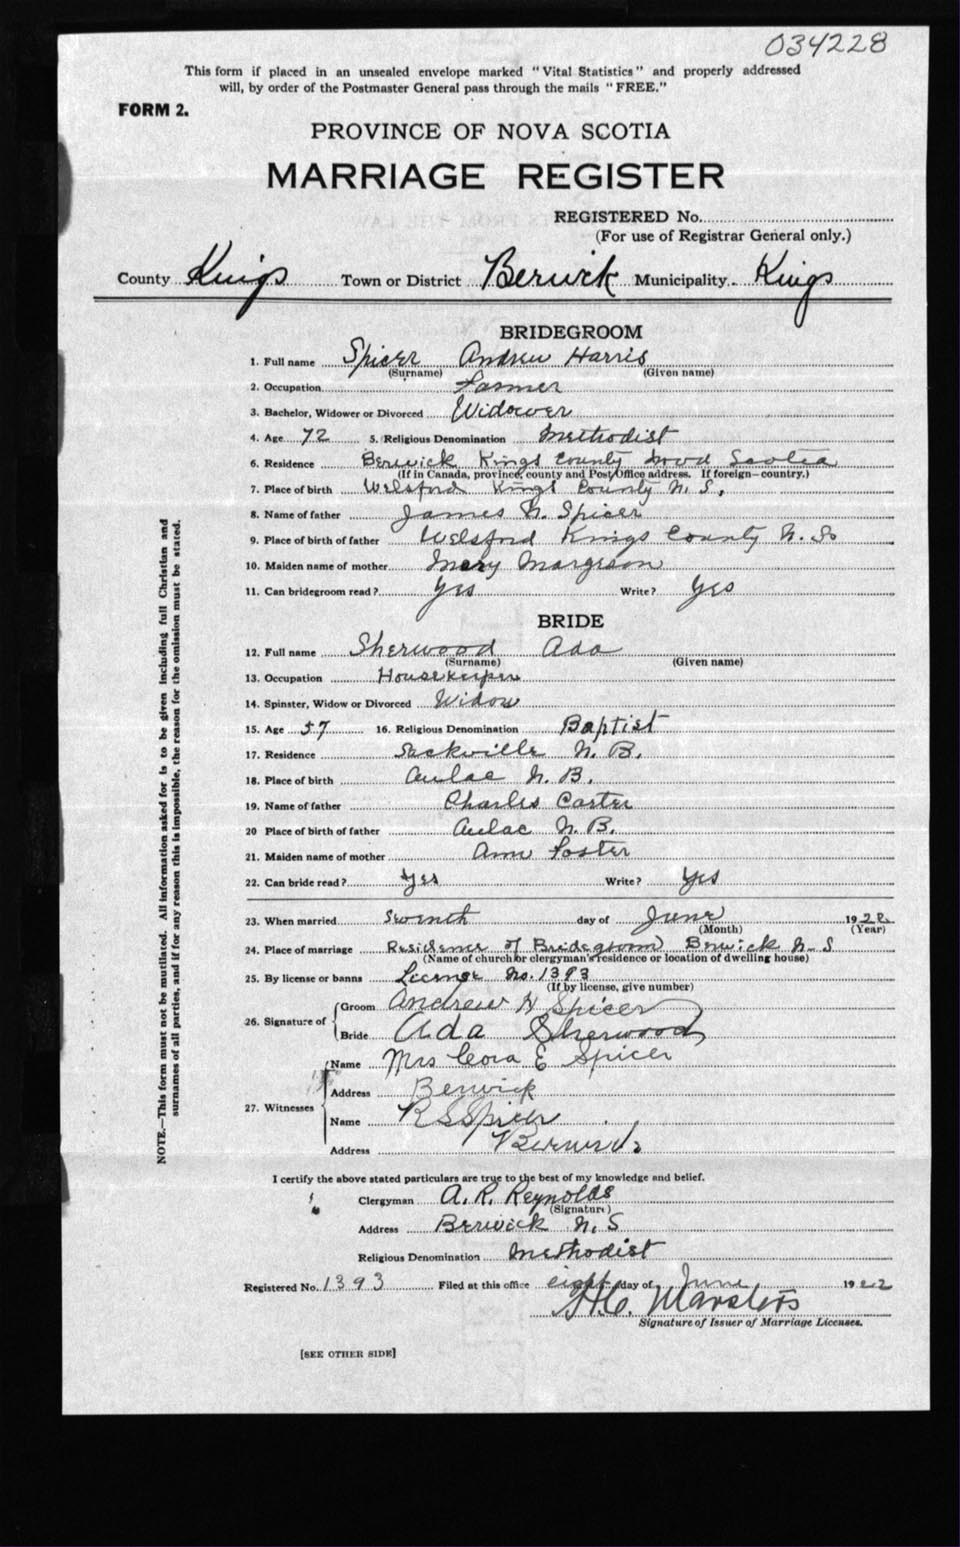 034228
This form if placed in an unsealed envelope marked "Vital Statistics" and properly addressed
will, by order of the Postmaster General pass through the mails "FREE."
FORM 2.
PROVINCE OF NOVA SCOTIA
MARRIAGE REGISTER
REGISTERED No.
(For use of Registrar General only.)
County Kings Town or District Berwick Municipality Kings
BRIDEGROOM
1. Full name Spicer Andrew Harris
(Surname) (Given name)
2. Occupation Farmer
3. Bachelor, Widower or Divorced Widower
4. Age 72 5. Religious Denomination Methodist
6. Residence Berwick Kings County Nova Scotia
(If in Canada, province, county and Post Office address. If foreign—country.)
7. Place of birth Welsford Kings County N. S.
8. Name of father James N. Spicer
9. Place of birth of father Welsford Kings County N. So
10. Maiden name of mother Mary Margeson
11. Can bridegroom read? Yes Write? Yes
BRIDE
12. Full name Sherwood Ada
(Surname) (Given name)
13. Occupation Housekeeper
14. Spinster, Widow or Divorced Widow
15. Age 57 16. Religious Denomination Baptist
17. Residence Sackville N. B.
18. Place of birth Aulac N. B.
19. Name of father Charles Carter
20 Place of birth of father Aulac N. B.
21. Maiden name of mother Ann Foster
22. Can bride read? Yes Write? Yes
23. When married Seventh day of June 1922
(Month) (Year)
24. Place of marriage Residence of Bridegroom Berwick N. S
(Name of church or clergyman's residence or location of dwelling house)
25. By license or banns License No. 1393
(If by license, give number)
26. Signature of Groom Andrew H Spicer
Bride Ada Sherwood
27. Witnesses Name Mrs Cora E Spicer
Address Berwick
Name R S Spicer
Address Berwick
I certify the above stated particulars are true to the best of my knowledge and belief.
Clergyman A. R. Reynolds
(Signature)
Address Berwick N. S
Religious Denomination Methodist
Registered No. 1393 Filed at this office eight day of June 1922
H. C. Marsters
Signature of Issuer of Marriage Licenses.
[SEE OTHER SIDE]
NOTE.—This form must not be mutilated. All information asked for is to be given including full Christian and
surnames of all parties, and if for any reason this is impossible, the reason for the omission must be stated.